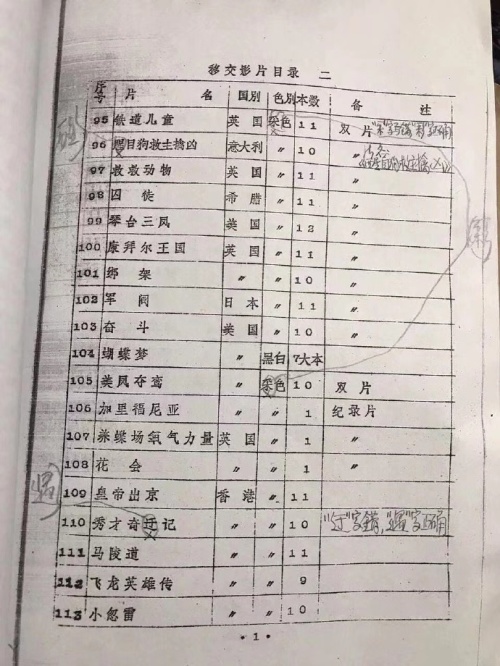 移交影片目录 二
序号 片 名 国别 色别 本数 备 注
95 铁道儿童 英国 采色 11 双片
96 盲目狗救主擒凶 意大利 〃 10 〃
97 救救动物 英国 〃 11 〃
98 囚徒 希腊 〃 11 〃
99 琴台三凤 美国 〃 12 〃
100 康拜尔王国 英国 〃 11 〃
101 绑架 〃 〃 10 〃
102 军阀 日本 〃 11 〃
103 奋斗 美国 〃 10 〃
104 蝴蝶梦 〃 黑白 7大本
105 美凤夺鸾 〃 采色 10 双片
106 加里福尼亚 〃 1 纪录片
107 养蝶场氧气力量 英国 〃 1 〃
108 花会 〃 〃 1 〃
109 皇帝出京 香港 〃 11
110 秀才奇迂记 〃 〃 10
111 马陵道 〃 〃 11
112 飞龙英雄传 〃 〃 9
113 小忽雷 〃 〃 10
·1·